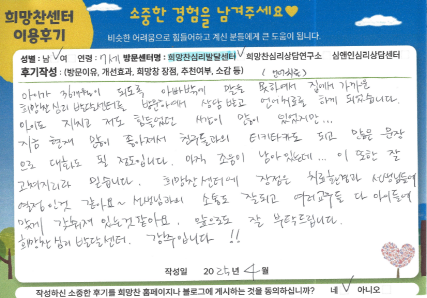 희망찬센터
이용후기
소중한 경험을 남겨주세요♥
비슷한 어려움으로 힘들어하고 계신 분들에게 큰 도움이 됩니다.
성별 : 남 ✓ 여 연령 : 7세 방문센터명 : 희망찬심리발달센터 / 희망찬심리상담연구소 심앤인심리상담센터
후기작성 : (방문이유, 개선효과, 희망찬 장점, 추천여부, 소감 등) (언어치료)
아이가 되도록 아빠밖에 말을 못하여 집에서 가까운
희망찬 심리 발달센터를 방문하여서 상담 받고 언어치료를 하게 되었습니다.
아이도 저도 힘들었던 많이 있었지만...
지금 현재 많이 좋아져서 친구들과의 티키타카도 되고 많은 문장
으로 대화도 될 정도입니다. 아직 조음이 남아있는데... 이 또한 잘
고쳐지리라 믿습니다. 희망찬센터에 장점은 치료환경과 선생님들의
열정인것 같아요~ 선생님과의 소통도 잘되고 여러교구들 다 아이들에
맞게 갖춰져 있는것 같아요. 앞으로도 잘 부탁드립니다.
희망찬심리 발달센터. 강추입니다 !!
작성일 2025년 4월
작성하신 소중한 후기를 희망찬 홈페이지나 블로그에 게시하는 것을 동의하십니까? 네 ✓ 아니오